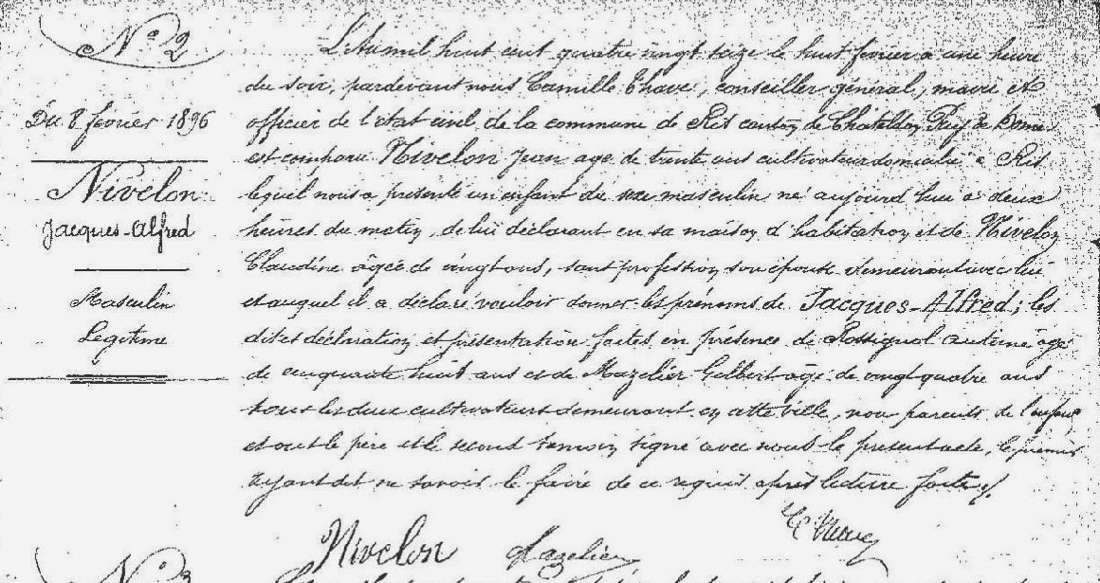 N° 2
Du 8 février 1896
Nivelon
Jacques-Alfred
Masculin
Legitime
L'An mil huit cent quatre vingt seize le huit février à une heure
du soir, pardevant nous Camille Chave, conseiller général, maire et
officier de l'etat civil de la commune de Ris canton de Chateldon Puy de Dome
est comparu Nivelon Jean age de trente ans cultivateur domicilié à Ris
lequel nous a présenté un enfant du sexe masculin né aujourd'hui à deux
heures du matin, de lui déclarant en sa maison d'habitation et de Nivelon
Claudine âgée de vingt ans, sans profession son épouse demeurant avec lui
et auquel il a déclaré vouloir donner les prénoms de Jacques-Alfred; les
dites déclaration et présentation faites en présence de Rossignol Antoine âgé
de cinquante huit ans et de Mazelier Gilbert âgé de vingt quatre ans
tous les deux cultivateurs demeurant en cette ville, non parents de l'enfant
et ont le père et le second temoin signé avec nous le present acte, le premier
ayant dit ne savoir le faire de ce requis après lecture faite./.
Nivelon Mazelier
N° 3